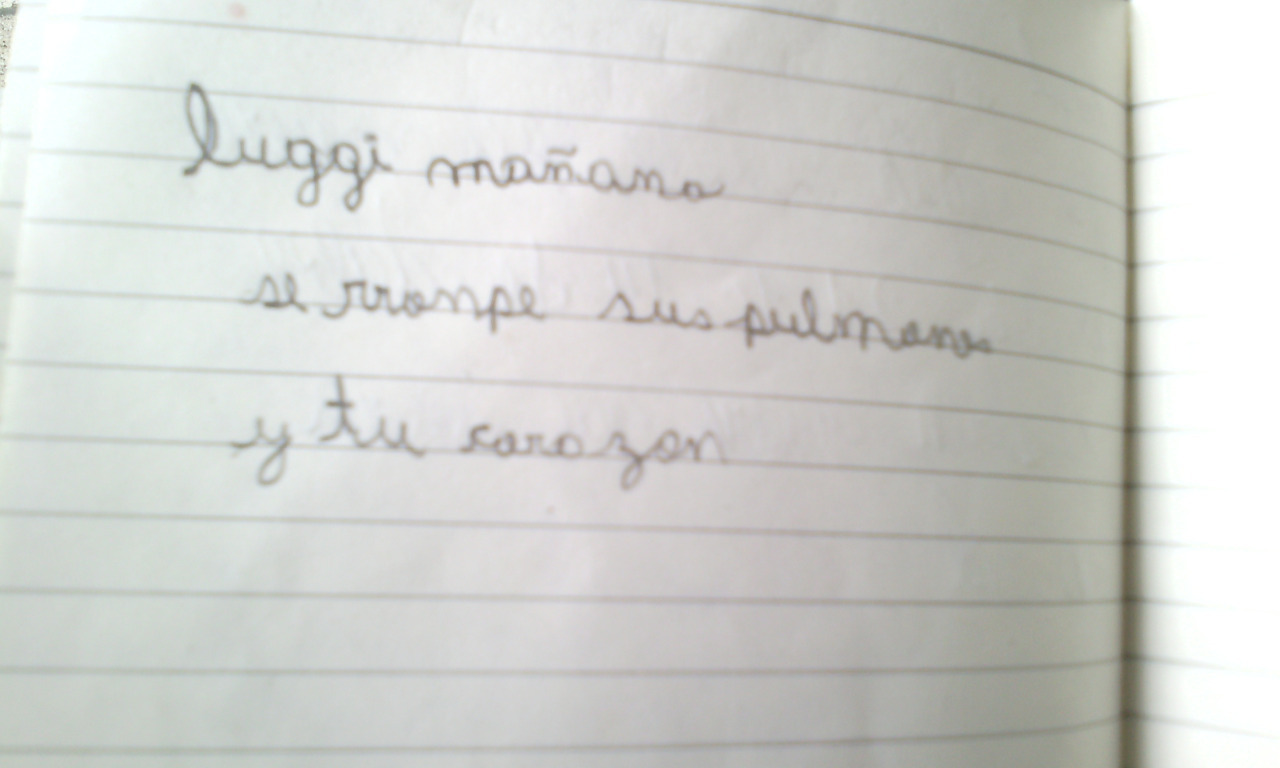 luggi mañana
se rronpe sus pulmones
y tu corozon